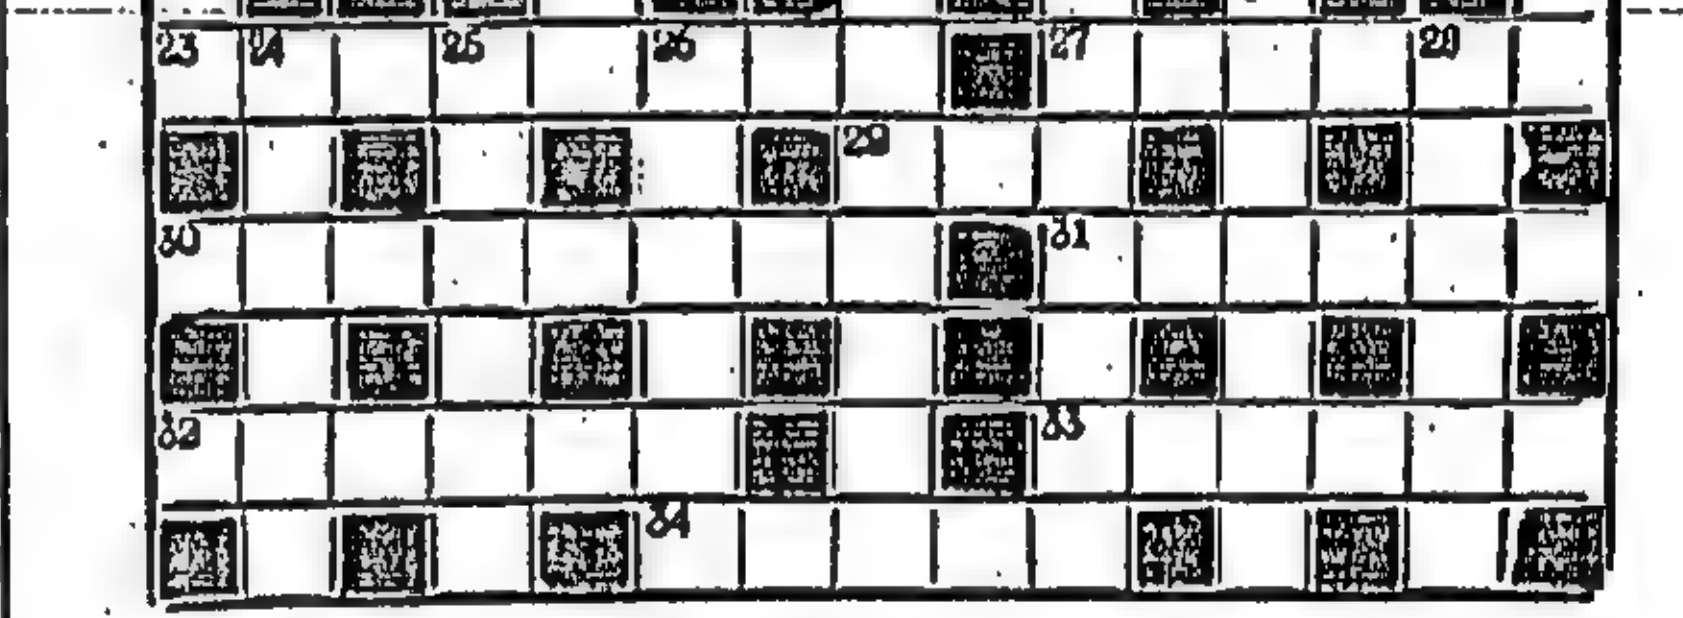 23 24 25 26 27 28
29
30 31
32 33
34